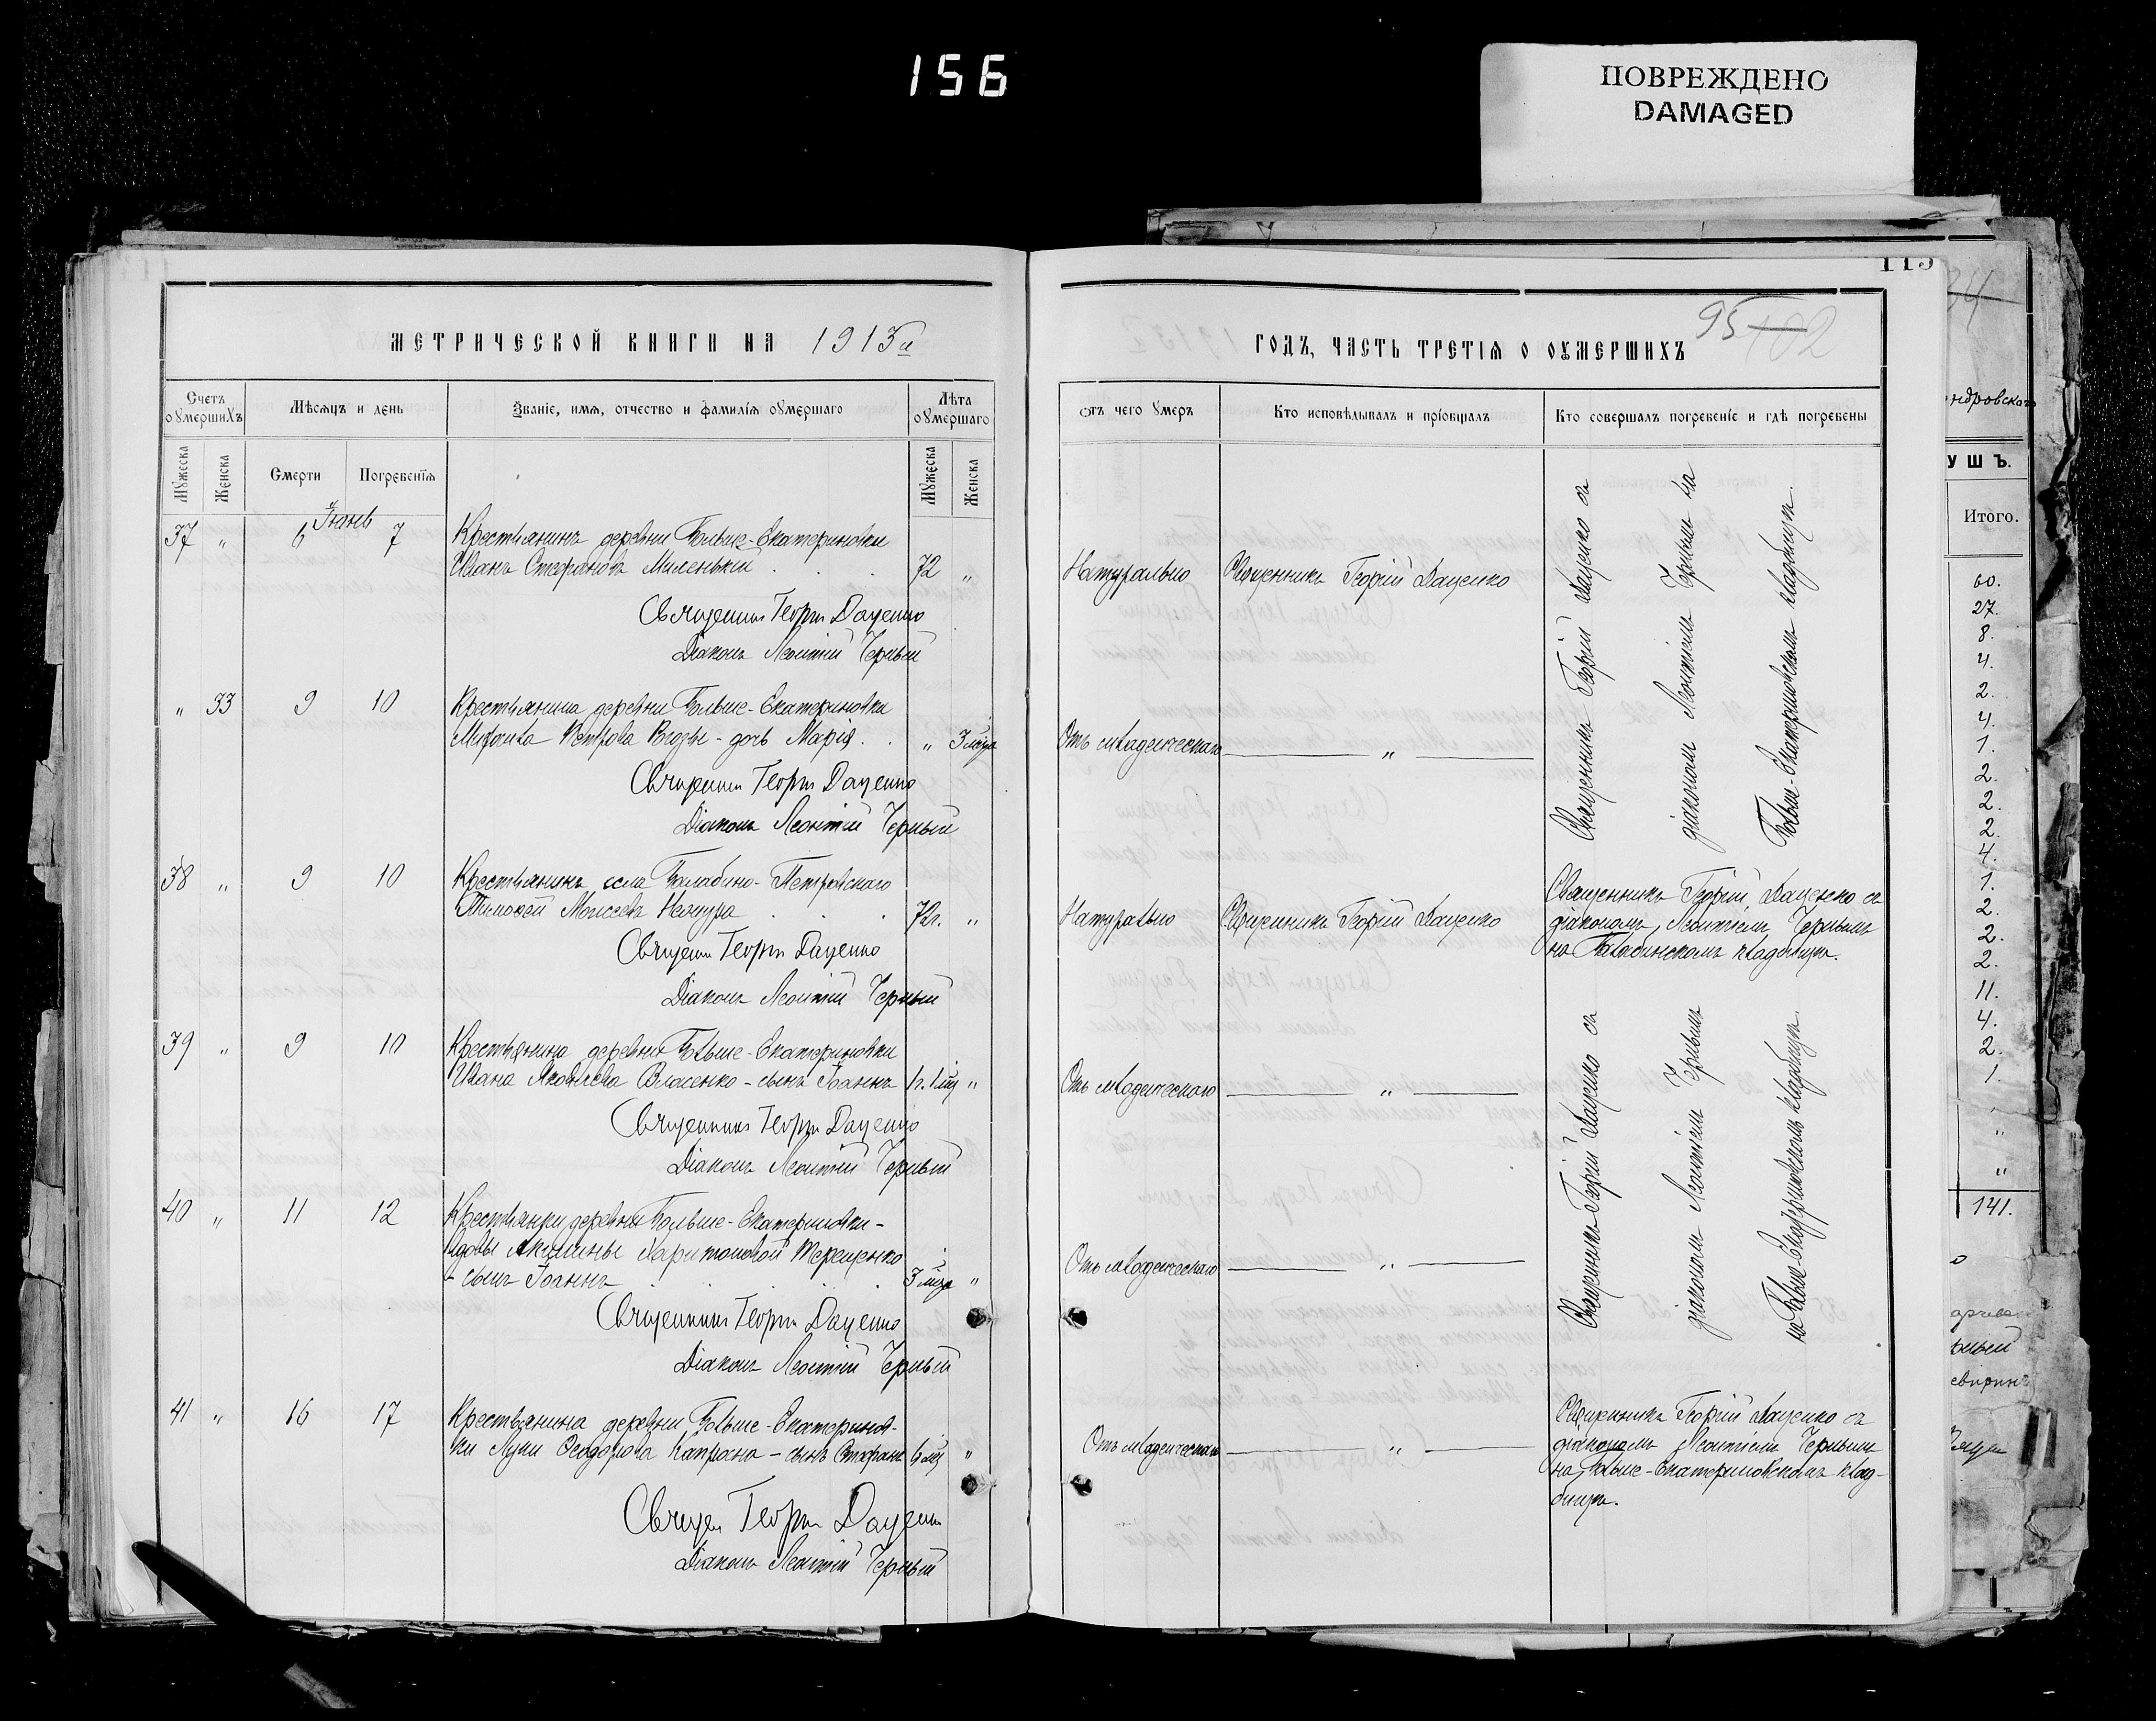 156
ПОВРЕЖДЕНО
DAMAGED
115
95 102
МЕТРИЧЕСКОЙ КНИГИ НА 1913й
ГОДЪ, ЧАСТЬ ТРЕТІЯ О ОУМЕРШИХЪ
Счетъ оумершихъ
Мѣсяцъ и день
Званіе, имя, отчество и фамилія оумершаго
Лѣта оумершаго
Отъ чего умеръ
Кто исповѣдывалъ и пріобщалъ
Кто совершалъ погребеніе и гдѣ погребены
Мужеска
Женска
Смерти
Погребенія
Мужеска
Женска
Іюнь
37 " 6 7 Крестьянинъ деревни Больше-Екатериновки
Иванъ Стефановъ Миленькій . . . 72 "
Натурально
Священникъ Георгій Даценко
Священникъ Георгій Даценко
Діаконъ Леонтій Черный
" 33 9 10 Крестьянина деревни Больше-Екатериновки
Петрова - дочь Марія . . " 3 мца
Отъ младенческаго "
Священникъ Георгій Даценко
Діаконъ Леонтій Черный
Священникъ Георгій Даценко съ
діакономъ Леонтіемъ Чернымъ на
Больше-Екатериновскомъ кладбищѣ.
38 " 9 10 Крестьянинъ села Балабино-Петровскаго
Тимоѳей Моисеевъ . . . 72г. "
Натурально
Священникъ Георгій Даценко
Священникъ Георгій Даценко съ
діакономъ Леонтіемъ Чернымъ
на Балабинскомъ кладбищѣ.
Священ Георгій Даценко
Діаконъ Леонтій Черный
39 " 9 10 Крестьянина деревни Больше-Екатериновки
Ивана Яковлева Власенко - сынъ Іоаннъ 1г. 1 мц "
Отъ младенческаго "
Священникъ Георгій Даценко
Діаконъ Леонтій Черный
40 " 11 12 Крестьянки деревни Больше-Екатериновки -
вдовы Акилины Харитоновой Терещенко
- сынъ Іоаннъ . . . 3 мца "
Отъ младенческаго "
Священникъ Георгій Даценко
Діаконъ Леонтій Черный
Священникъ Георгій Даценко съ
діакономъ Леонтіемъ Чернымъ
на Больше-Екатериновскомъ кладбищѣ.
41 " 16 17 Крестьянина деревни Больше-Екатеринов-
ки Луки Ѳеодорова Капрана - сынъ Стефанъ 6 мц "
Отъ младенческаго "
Священникъ Георгій Даценко съ
діакономъ Леонтіемъ Чернымъ
на Больше-Екатериновскомъ клад-
бищѣ.
Священ Георгій Даценко
Діаконъ Леонтій Черный
34
ндровскаго
УШЪ.
Итого.
60.
27.
8.
4.
2.
4.
1.
2.
2.
2.
4.
1.
2.
2.
2.
11.
4.
2.
1.
"
"
"
141.